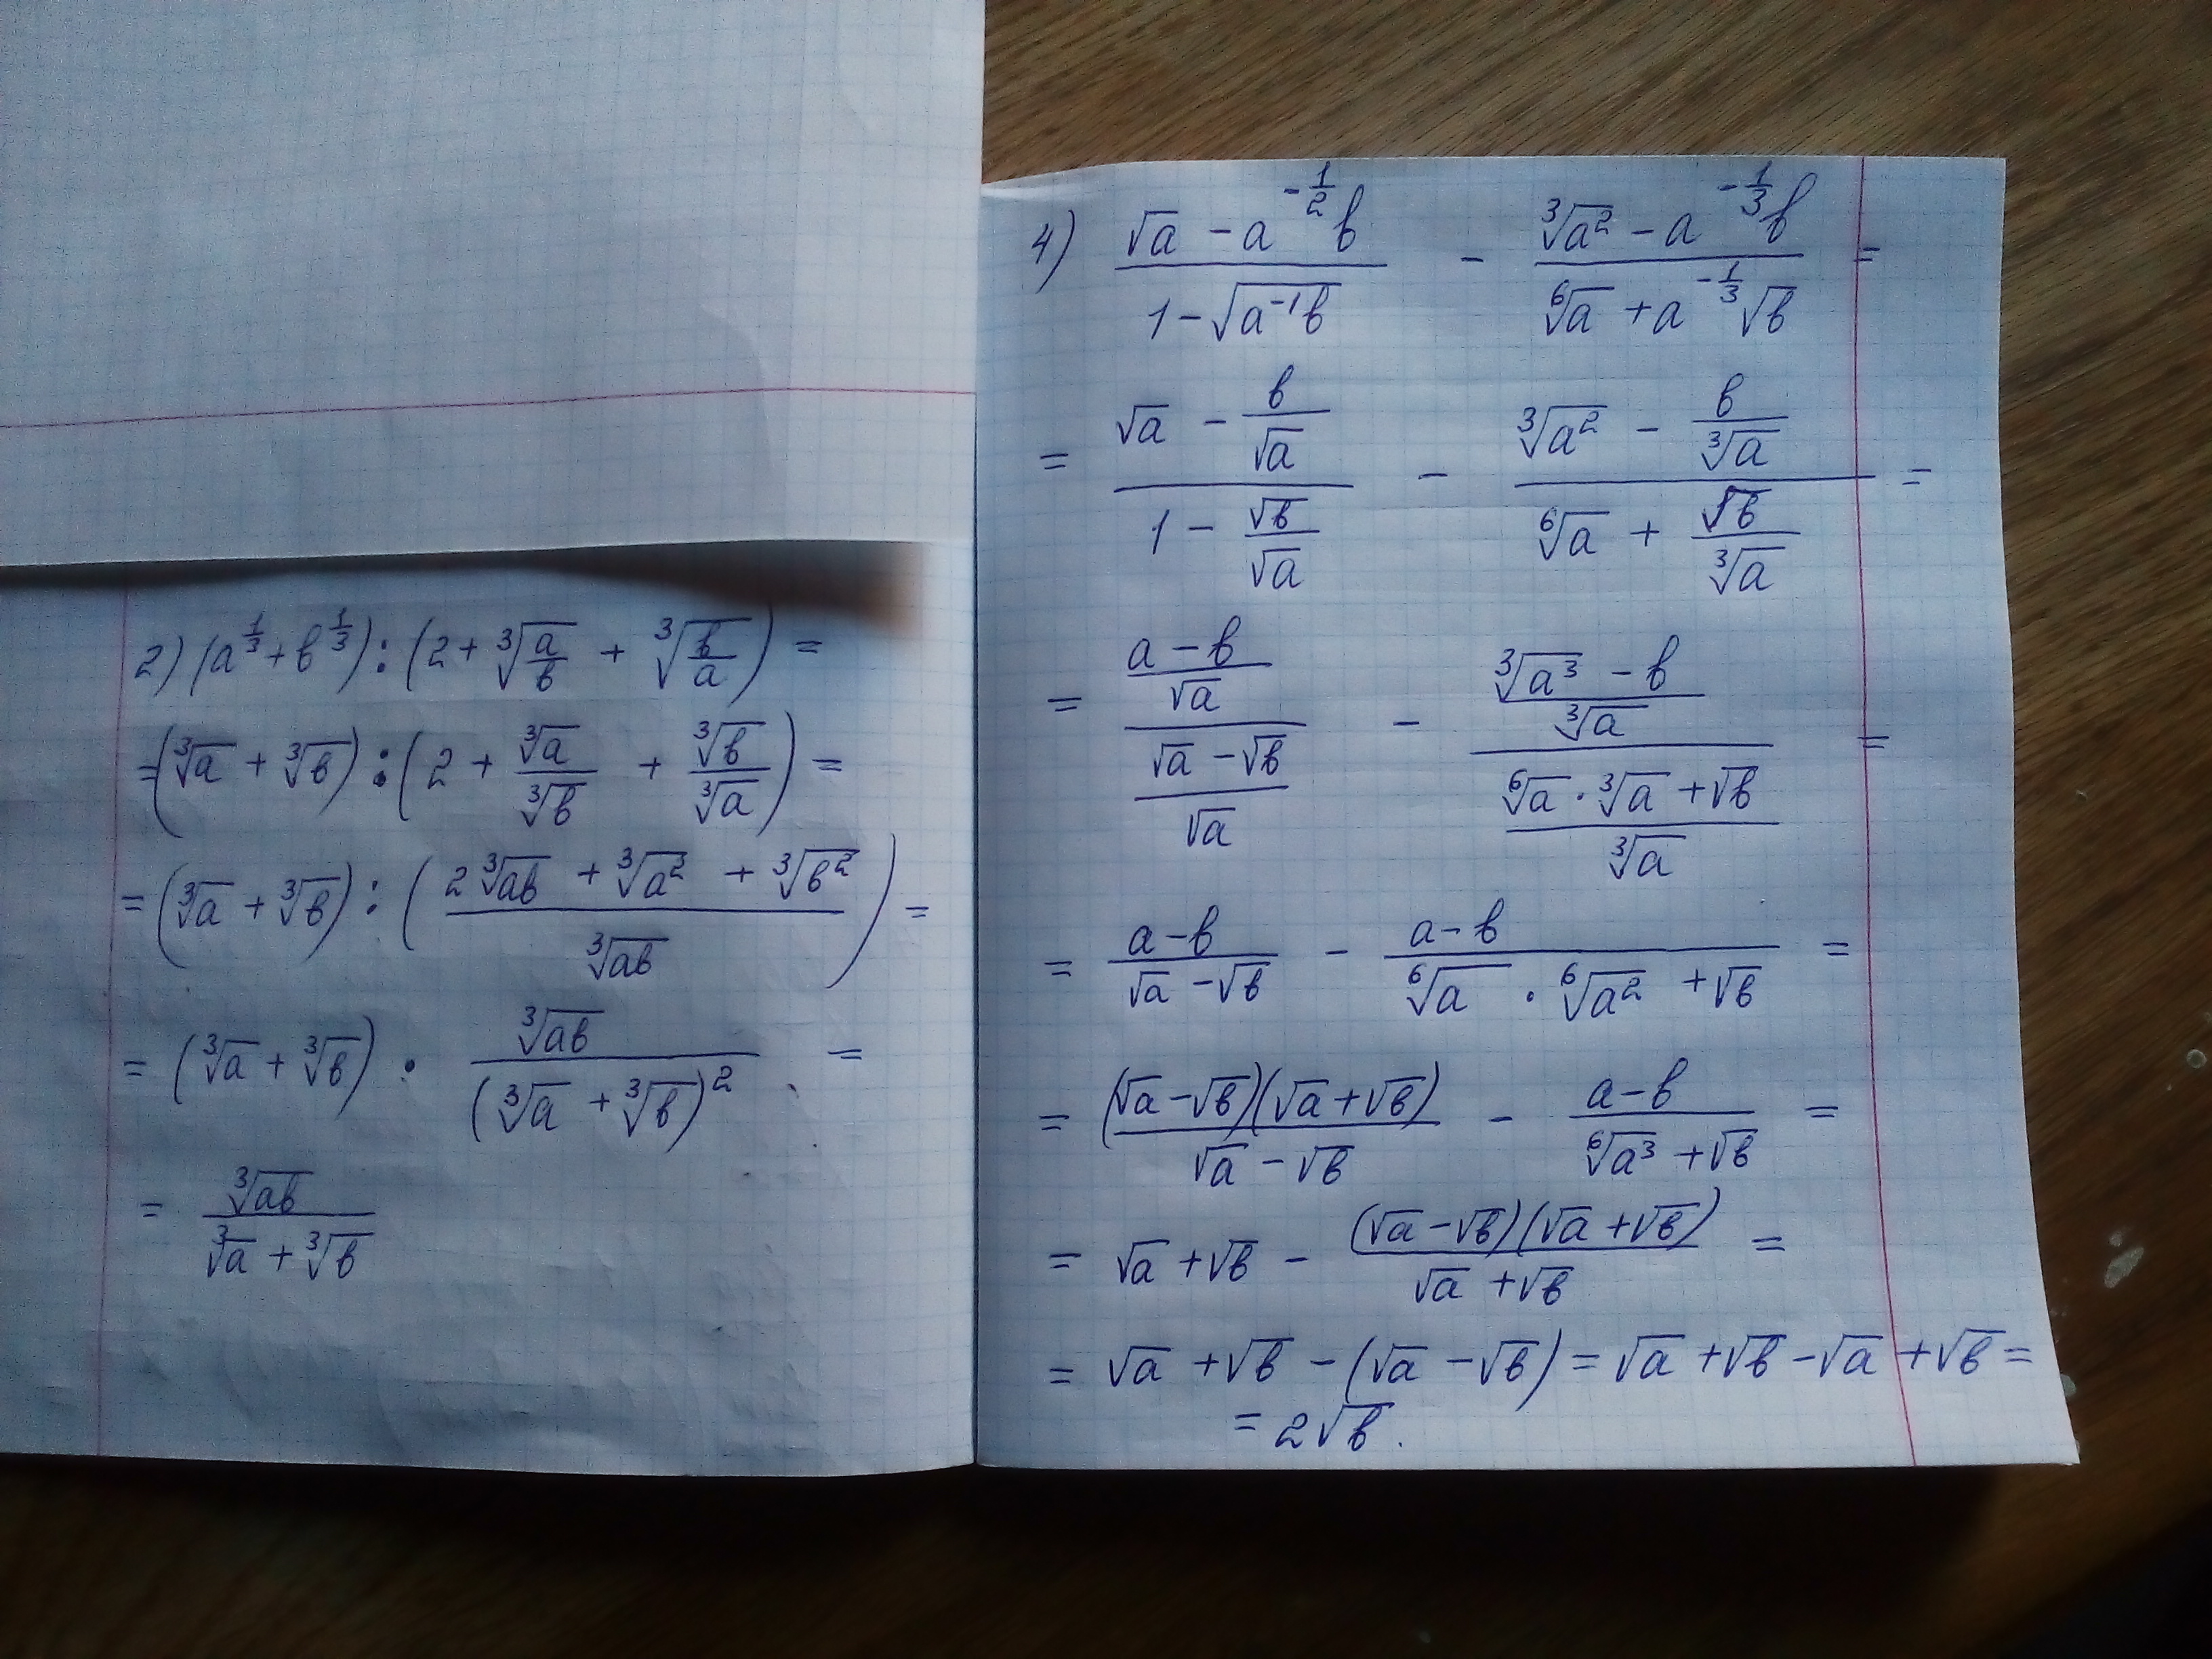 2) (a^{1/3} + b^{1/3}) : (2 + ∛(a/b) + ∛(b/a)) =
= (∛a + ∛b) : (2 + ∛a/∛b + ∛b/∛a) =
= (∛a + ∛b) : ((2∛ab + ∛a² + ∛b²)/∛ab) =
= (∛a + ∛b) · ∛ab/(∛a + ∛b)² =
= ∛ab/(∛a + ∛b)
4) (√a − a^{−1/2}b)/(1 − √(a⁻¹b)) − (∛a² − a^{−1/3}b)/(⁶√a + a^{−1/3}√b) =
= (√a − b/√a)/(1 − √b/√a) − (∛a² − b/∛a)/(⁶√a + √b/∛a) =
= ((a − b)/√a)/((√a − √b)/√a) − ((∛a³ − b)/∛a)/((⁶√a · ∛a + √b)/∛a) =
= (a − b)/(√a − √b) − (a − b)/(⁶√a · ⁶√a² + √b) =
= (√a − √b)(√a + √b)/(√a − √b) − (a − b)/(⁶√a³ + √b) =
= √a + √b − (√a − √b)(√a + √b)/(√a + √b) =
= √a + √b − (√a − √b) = √a + √b − √a + √b =
= 2√b.